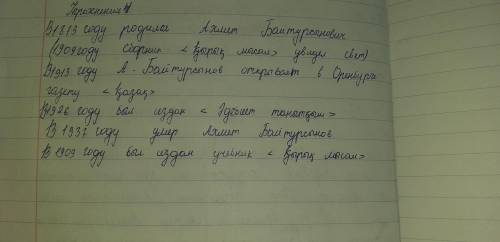 Упражнение 4
В 1873 году родился Ахмет Байтурсанович
(1909 году сборник < Қырық мысал > увидел свет)
В 1913 году А. Байтурсанов открывает в Оренбурге
газету < Қазақ >
В 1926 году был издан < Әдебиет танытқыш >
В 1937 году умер Ахмет Байтурсанов
В 1909 году был издан учебник < Қырық мысал >